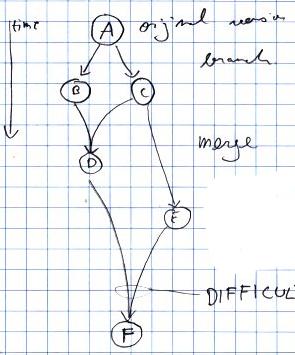 time
A original version
branch
B C
merge
D
E
DIFFICUL
F